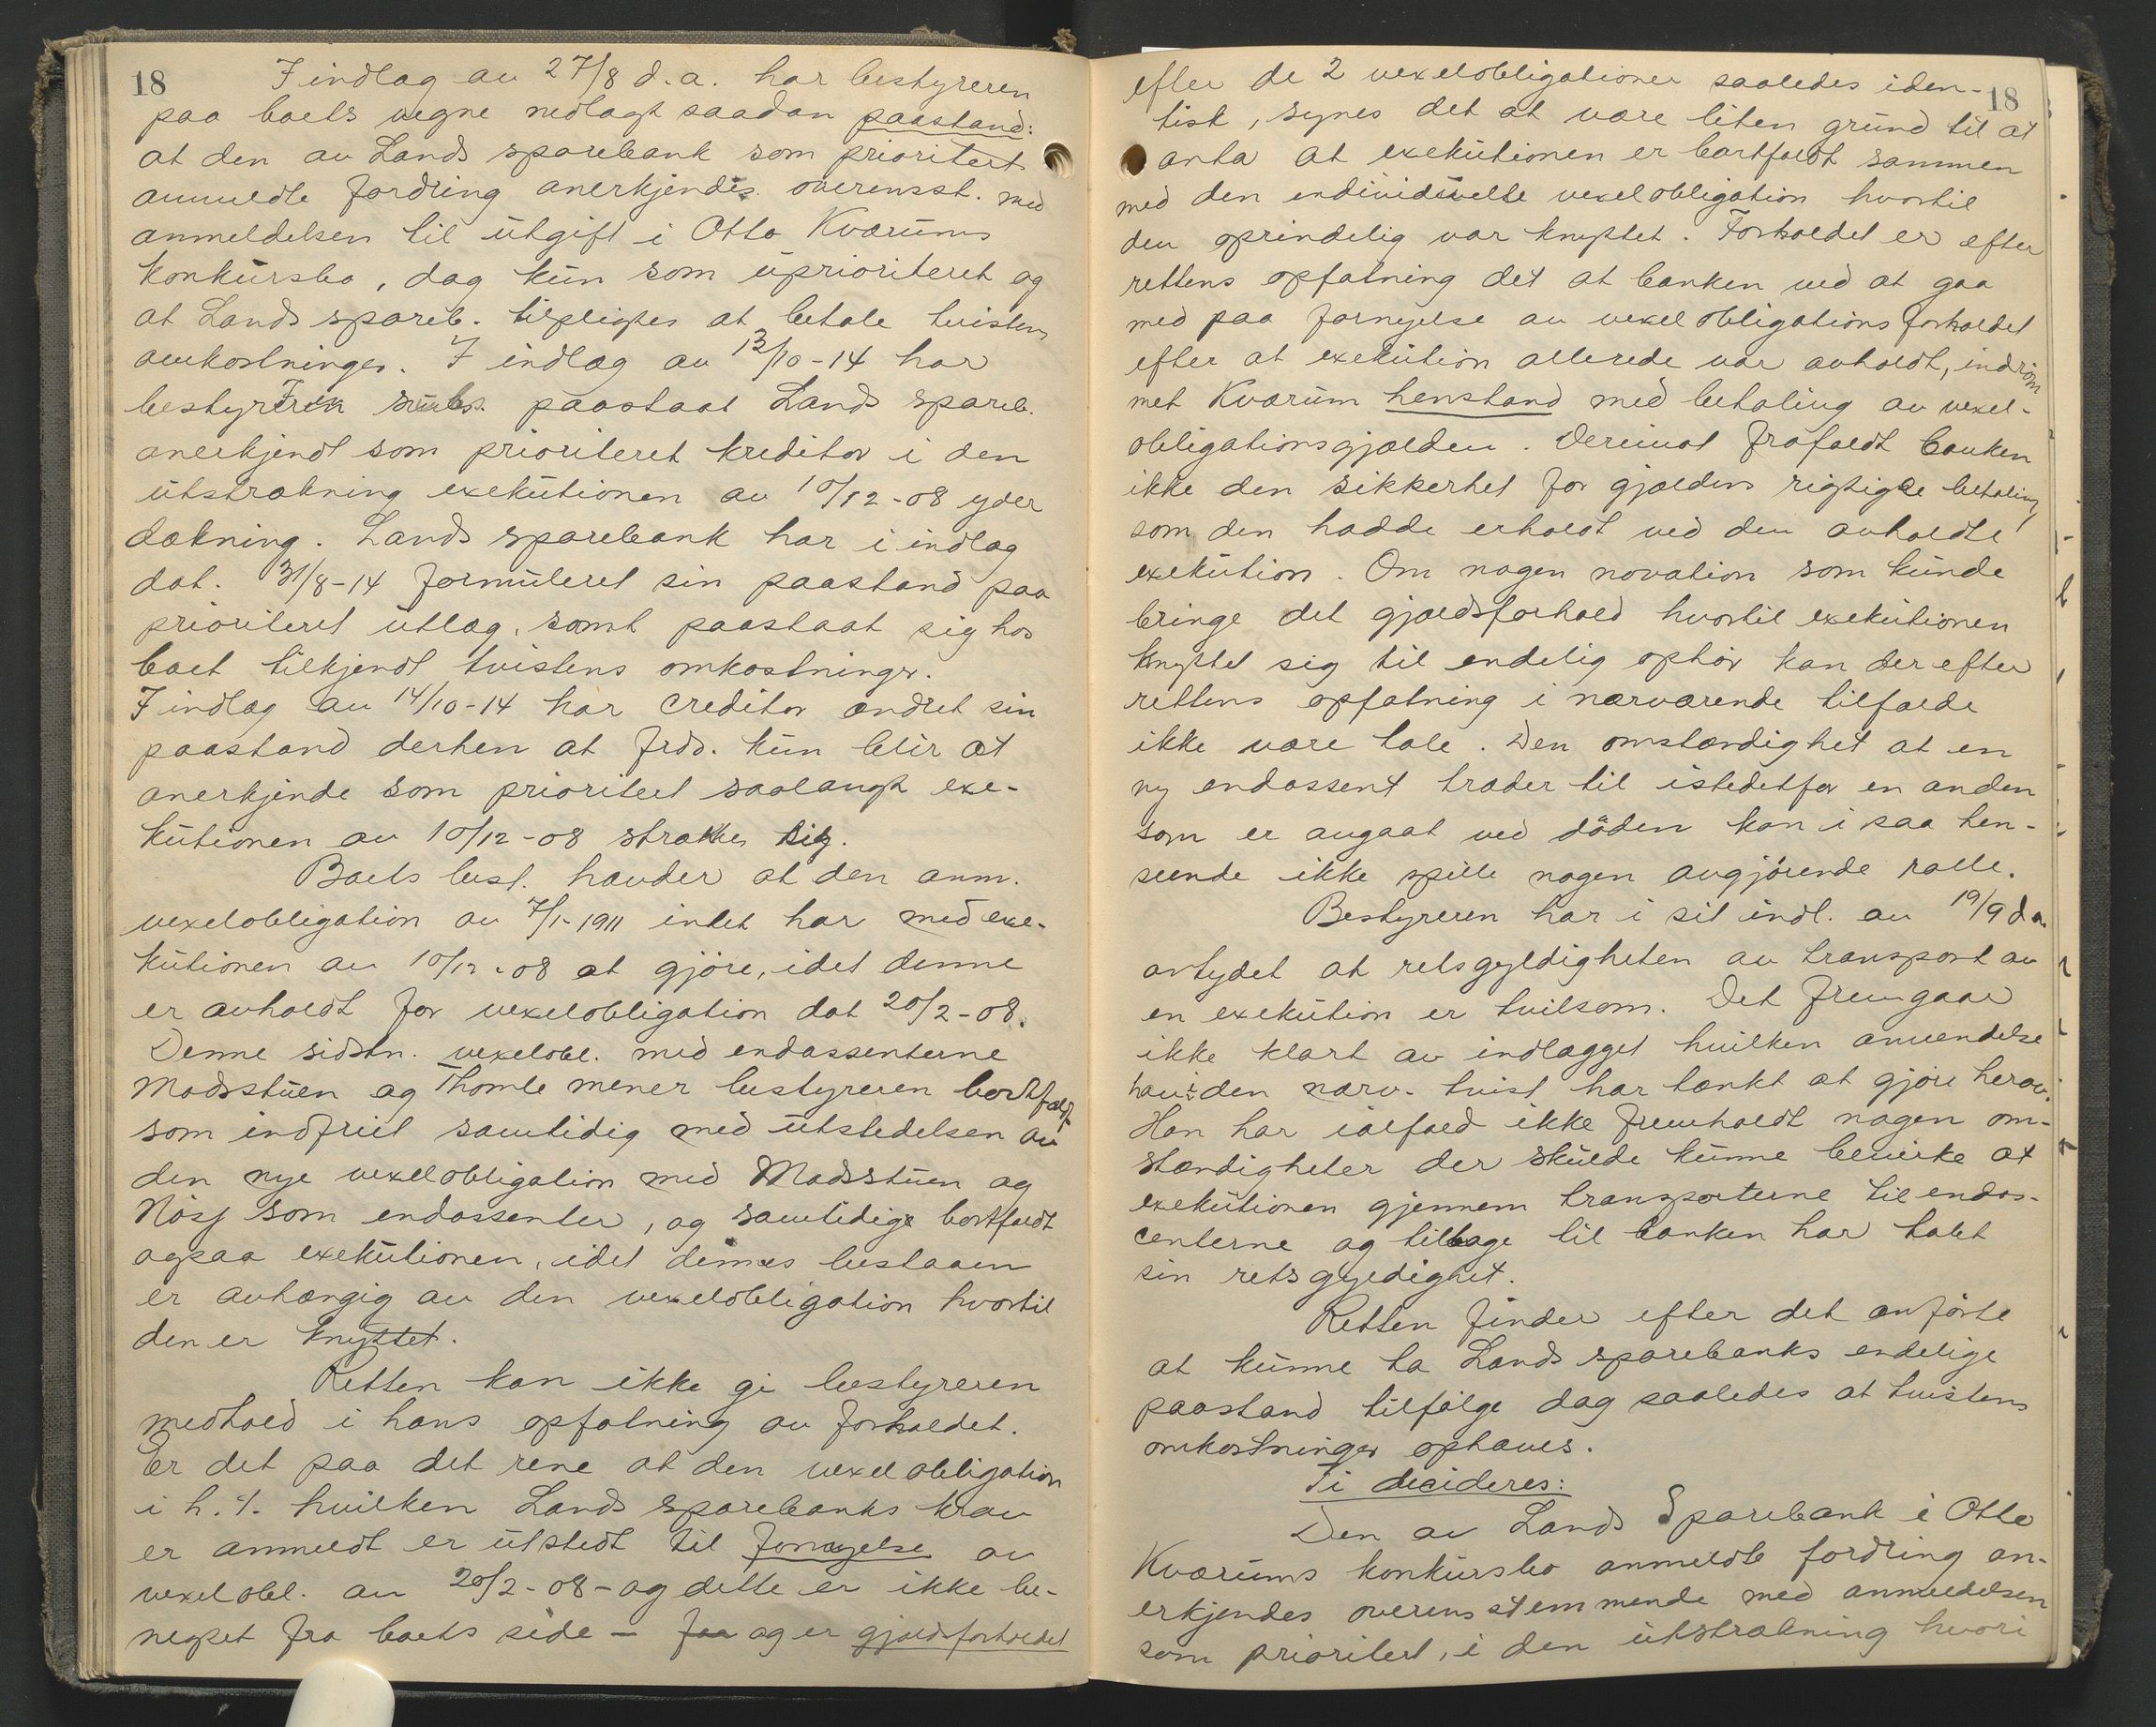 18
I indlæg av 27/8 d.a. har bestyreren
paa boets vegne nedlagt saadan paastand:
at den av Lands sparebank som prioritert
anmeldte fordring anerkjendes overensst. med
anmeldelsen til utgift i Otto Kværums
konkursbo, dog kun som uprioriteret og
at Lands spareb. tilpligtes at betale tvistens
omkostninger. I indlæg av 13/10-14 har
bestyreren subs. paastaat Lands spareb.
anerkjendt som prioriteret kreditor i den
utstrækning exekutionen av 10/12-08 yder
dækning. Lands sparebank har i indlæg
dat. 31/8-14 formuleret sin paastand paa
prioriteret utlæg, samt paastaat sig hos
boet tilkjendt tvistens omkostninger.
I indlæg av 14/10-14 har creditor ændret sin
paastand derhen at frdr. kun blir at
anerkjende som prioritert saalangt exe-
kutionen av 10/12-08 strækker sig.
Boets best. hævder at den anm.
vexelobligation av 7/1-1911 intet har med exe-
kutionen av 10/12-08 at gjøre, idet denne
er avholdt for vexelobligation dat 20/2-08.
Denne sidstn. vexelobl. med endossenterne
Madsstuen og Thomle mener bestyreren bortfaldt
som indfriet samtidig med utstedelsen av
den nye vexelobligation med Madsstuen og
Nøss som endossenter, og samtidige bortfaldt
ogsaa exekutionen, idet dennes bestaaen
er avhængig av den vexelobligation hvortil
den er knyttet.
Retten kan ikke gi bestyreren
medhold i hans opfatning av forholdet.
Er det paa det rene at den vexelobligation
i h. t. hvilken Lands sparebanks krav
er anmeldt er utstedt til fornyelse av
vexelobl. av 20/2-08 - og dette er ikke be-
negtet fra boets side - og er gjældsforholdet
18
efter de 2 vexelobligationer saaledes iden-
tisk, synes det at være liten grund til at
anta at exekutionen er bortfaldt sammen
med den individuelle vexelobligation hvortil
den oprindelig var knyttet. Forholdet er efter
rettens opfatning det at banken ved at gaa
med paa fornyelse av vexelobligationsforholdet
efter at exekution allerede var avholdt, indrøm
met Kværum henstand med betaling av vexel-
obligationsgjælden. Derimot frafaldt banken
ikke den sikkerhet for gjældens rigtige betaling
som den hadde erholdt ved den avholdte
exekution. Om nogen novation som kunde
bringe det gjældsforhold hvortil exekutionen
knyttet sig til endelig ophør kan der efter
rettens opfatning i nærværende tilfælde
ikke være tale. Den omstændighet at en
ny endossent træder til istedetfor en anden
som er avgaat ved døden kan i saa hen-
seende ikke spille nogen avgjørende rolle.
Bestyreren har i sit indl. av 19/9 d.a.
antydet at retsgyldigheten av transport av
en exekution er tvilsom. Det fremgaar
ikke klart av indlægget hvilken anvendelse
han i den nærv. tvist har tænkt at gjøre herav.
Han har ialfald ikke fremholdt nogen om-
stændigheter der skulde kunne bevirke at
exekutionen gjennem transporterne til endos-
centerne og tilbage til banken har tabt
sin retsgyldighet.
Retten finder efter det anførte
at kunne ta Lands sparebanks endelige
paastand tilfølge dog saaledes at tvistens
omkostninger ophæves.
Ti decideres:
Den av Lands Sparebank i Otto
Kværums konkursbo anmeldte fordring an-
erkjendes overensstemmende med anmeldelsen
som prioritert, i den utstrækning hvori